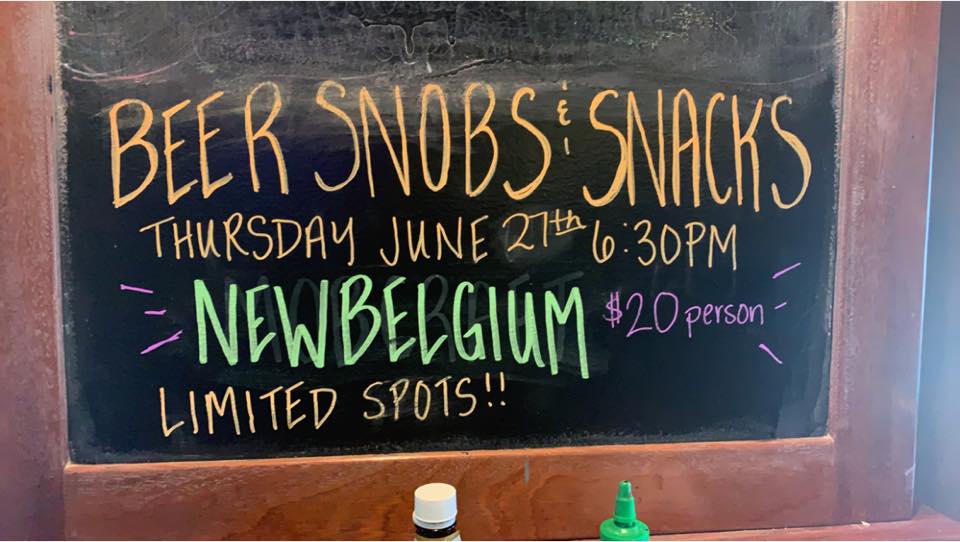 BEER SNOBS & SNACKS
THURSDAY JUNE 27th 6:30PM
NEWBELGIUM $20 person
LIMITED SPOTS!!